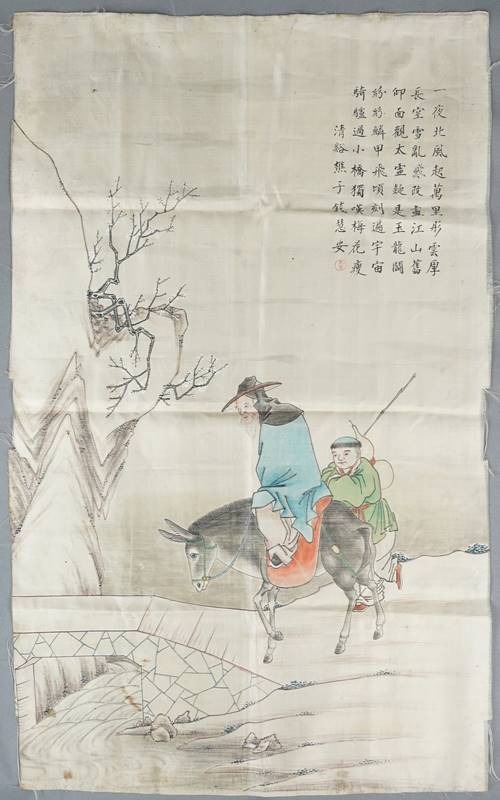 一夜北風起萬里彤雲厚
長空雪亂飄改盡江山舊
仰面觀太虛疑是玉龍鬪
紛紛鱗甲飛頃刻過宇宙
騎驢過小橋獨嘆梅花瘦
清谿樵子錢慧安